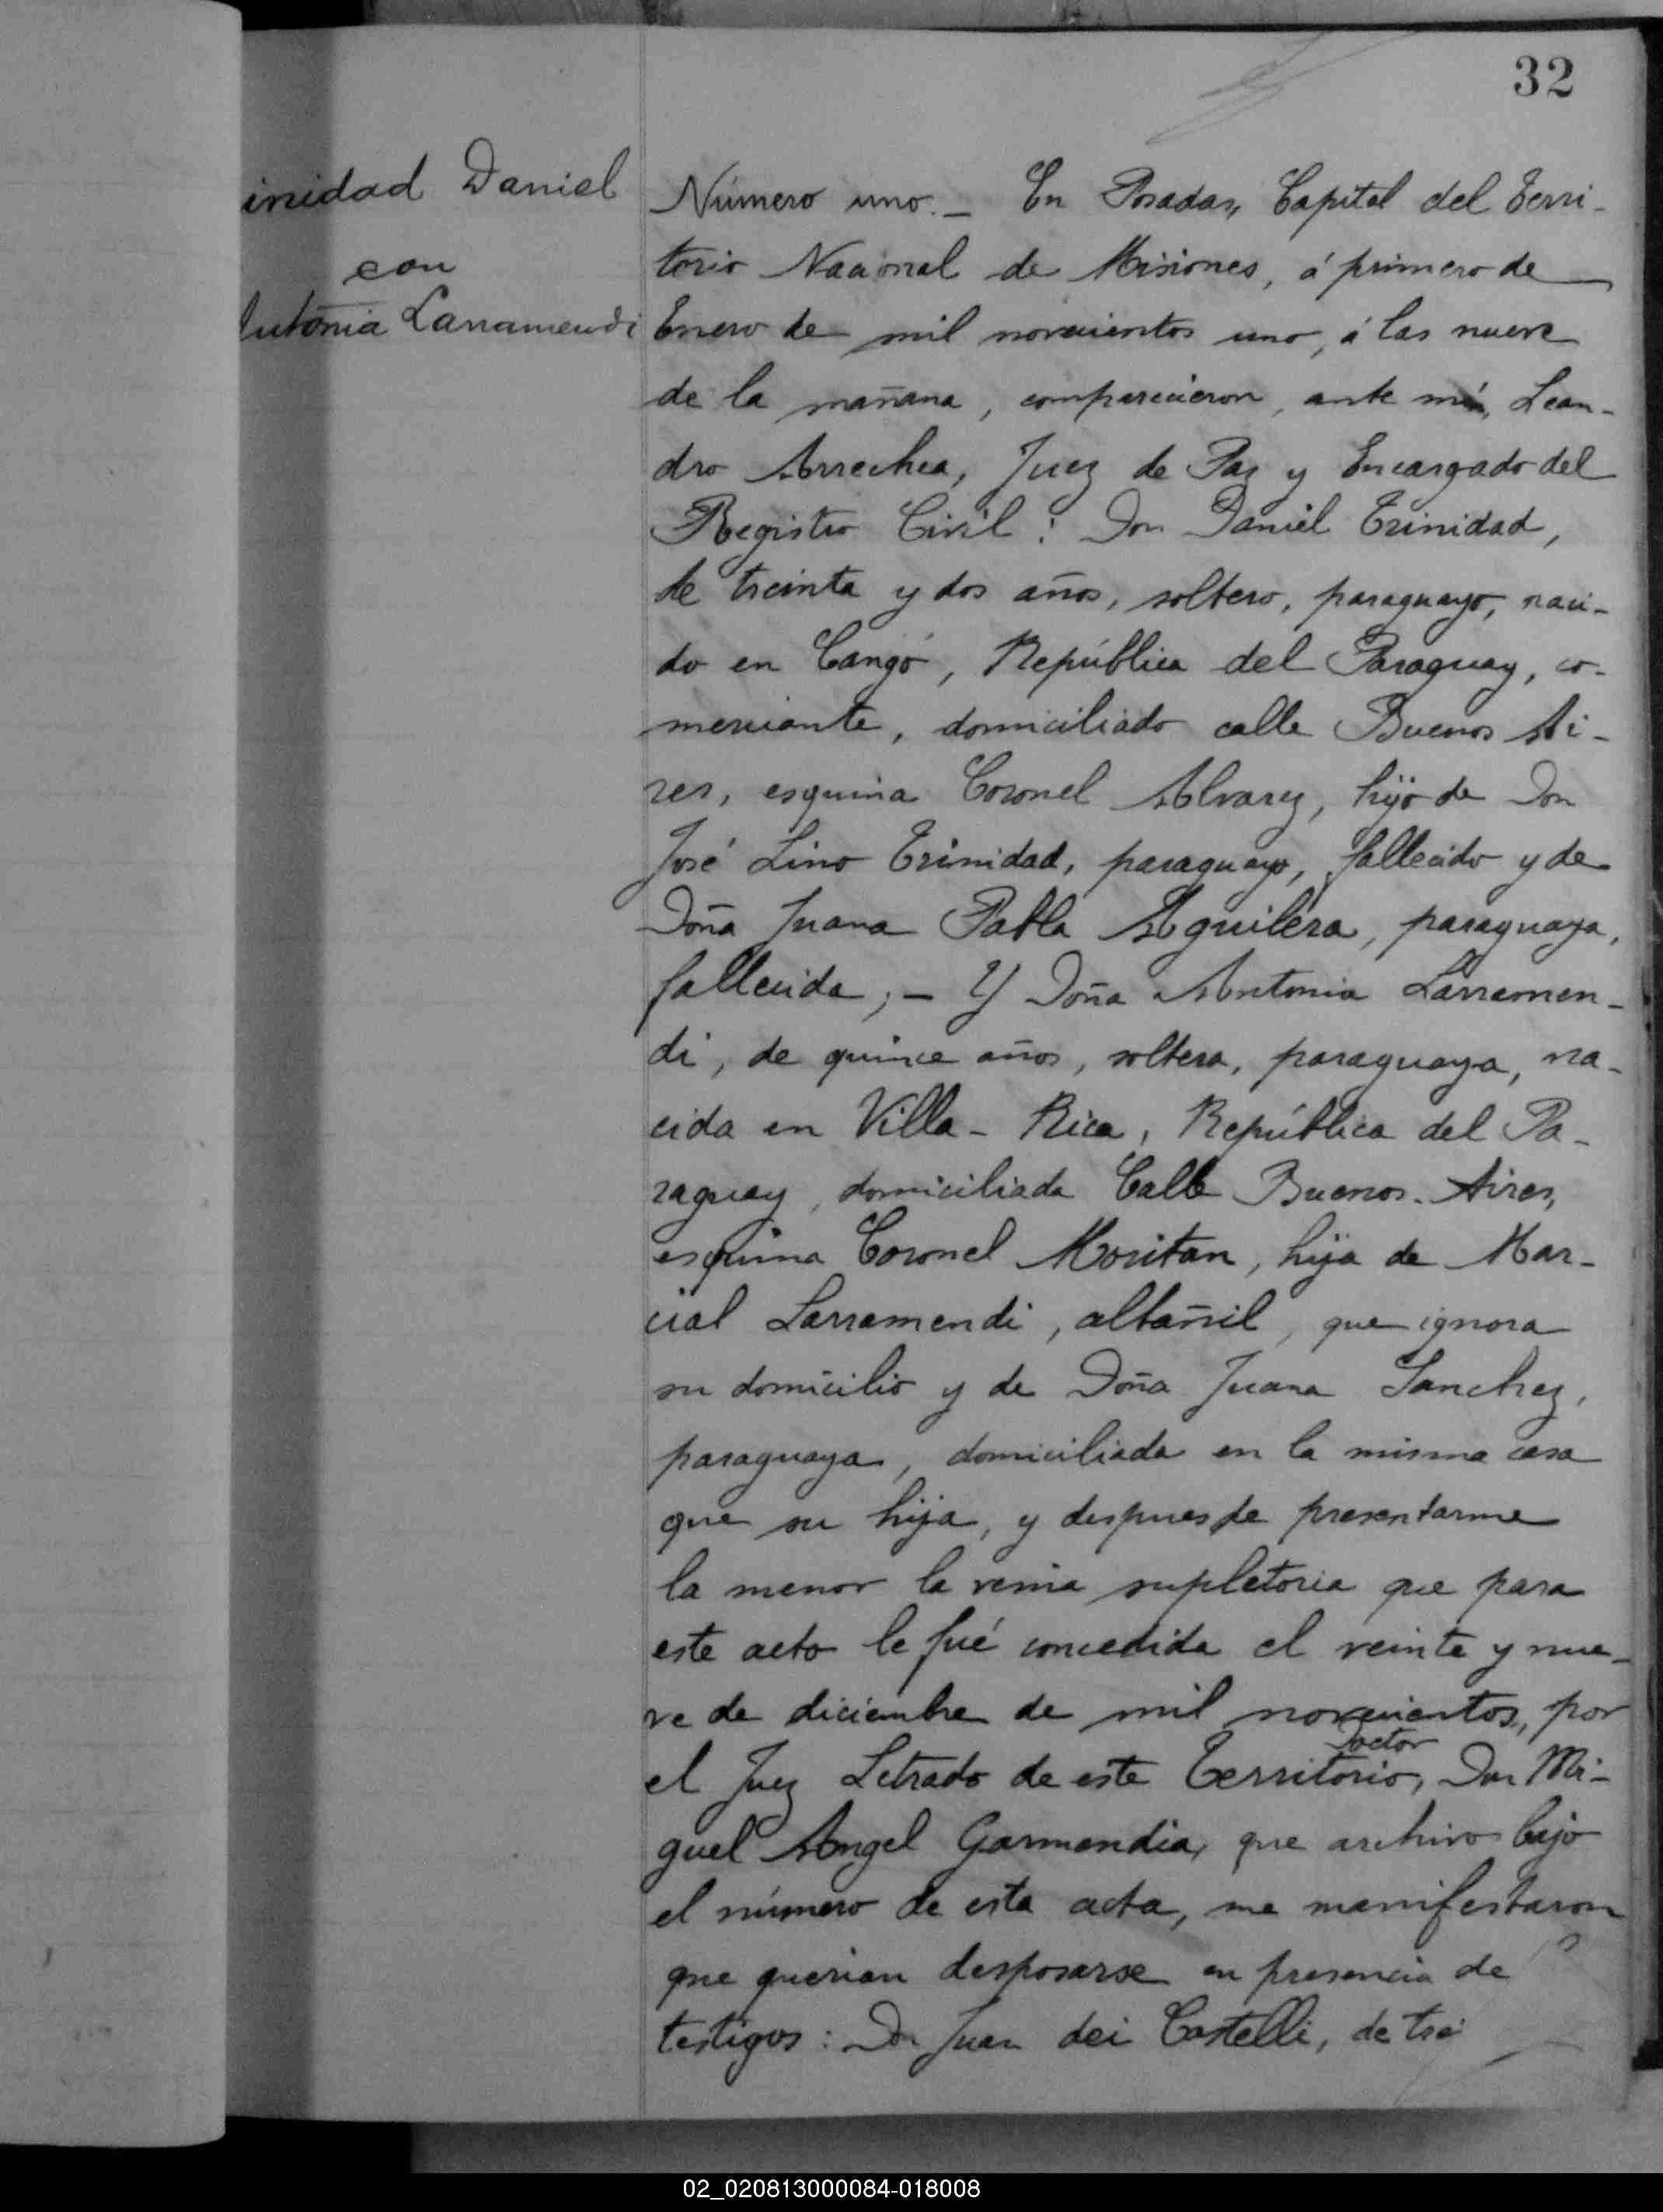 32
inidad Daniel
con
Antonia Larramendi
Número uno.— En Posadas, Capital del Terri-
torio Nacional de Misiones, á primero de
Enero de mil novecientos uno, á las nueve
de la mañana, comparecieron, ante mi, Lean-
dro Arrechea, Juez de Paz y Encargado del
Registro Civil: Don Daniel Trinidad,
de treinta y dos años, soltero, paraguayo, naci-
do en Cangó, República del Paraguay, co-
merciante, domiciliado calle Buenos Ai-
res, esquina Coronel Alvarez, hijo de Don
José Lino Trinidad, paraguayo, fallecido y de
Doña Juana Pabla Aguilera, paraguaya,
fallecida;— Y Doña Antonia Larramen-
di, de quince años, soltera, paraguaya, na-
cida en Villa-Rica, República del Pa-
raguay, domiciliada Calle Buenos-Aires,
esquina Coronel Moritan, hija de Mar-
cial Larramendi, albañil, que ignora
su domicilio y de Doña Juana Sanchez,
paraguaya, domiciliada en la misma casa
que su hija, y despues de presentarme
la menor la venia supletoria que para
este acto le fué concedida el veinte y nue-
ve de diciembre de mil novecientos, por
Doctor
el Juez Letrado de este Territorio, Don Mi-
guel Angel Garmendia, que archivo bajo
el número de esta acta, me manifestaron
que querian desposarse en presencia de
testigos: Dn Juan dei Castelli, de trei
02_020813000084-018008